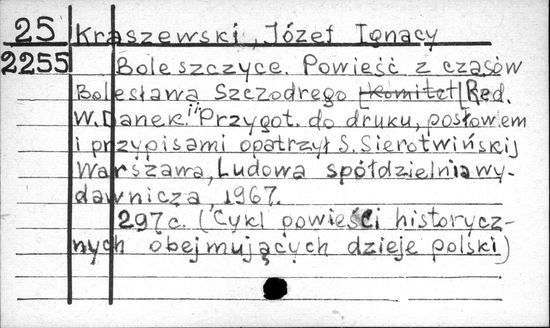 25 Kraszewski, Józef Ignacy
2255 Boleszczyce. Powieść z czasów
Bolesława Szczodrego [Komitet [Red.
W. Danek i" Przygot. do druku, posłowiem
i przypisami opatrzył S. Sierotwiński]
Warszawa, Ludowa spółdzielnia wy-
dawnicza, 1967.
297 c. (Cykl powieści historycz-
nych obejmujących dzieje polski)